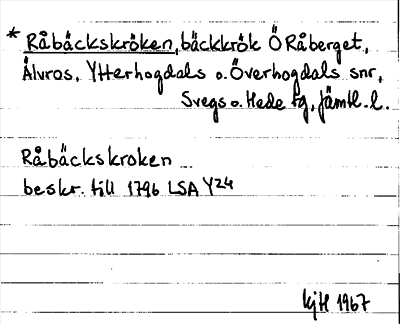 * Råbäckskröken, bäckkrök Ö Råberget,
Älvros, Ytterhogdals o. Överhogdals snr,
Svegs o. Hede tg, Jämtl. l.
Råbäckskroken
beskr. till 1796 LSA Y24
KjH 1967